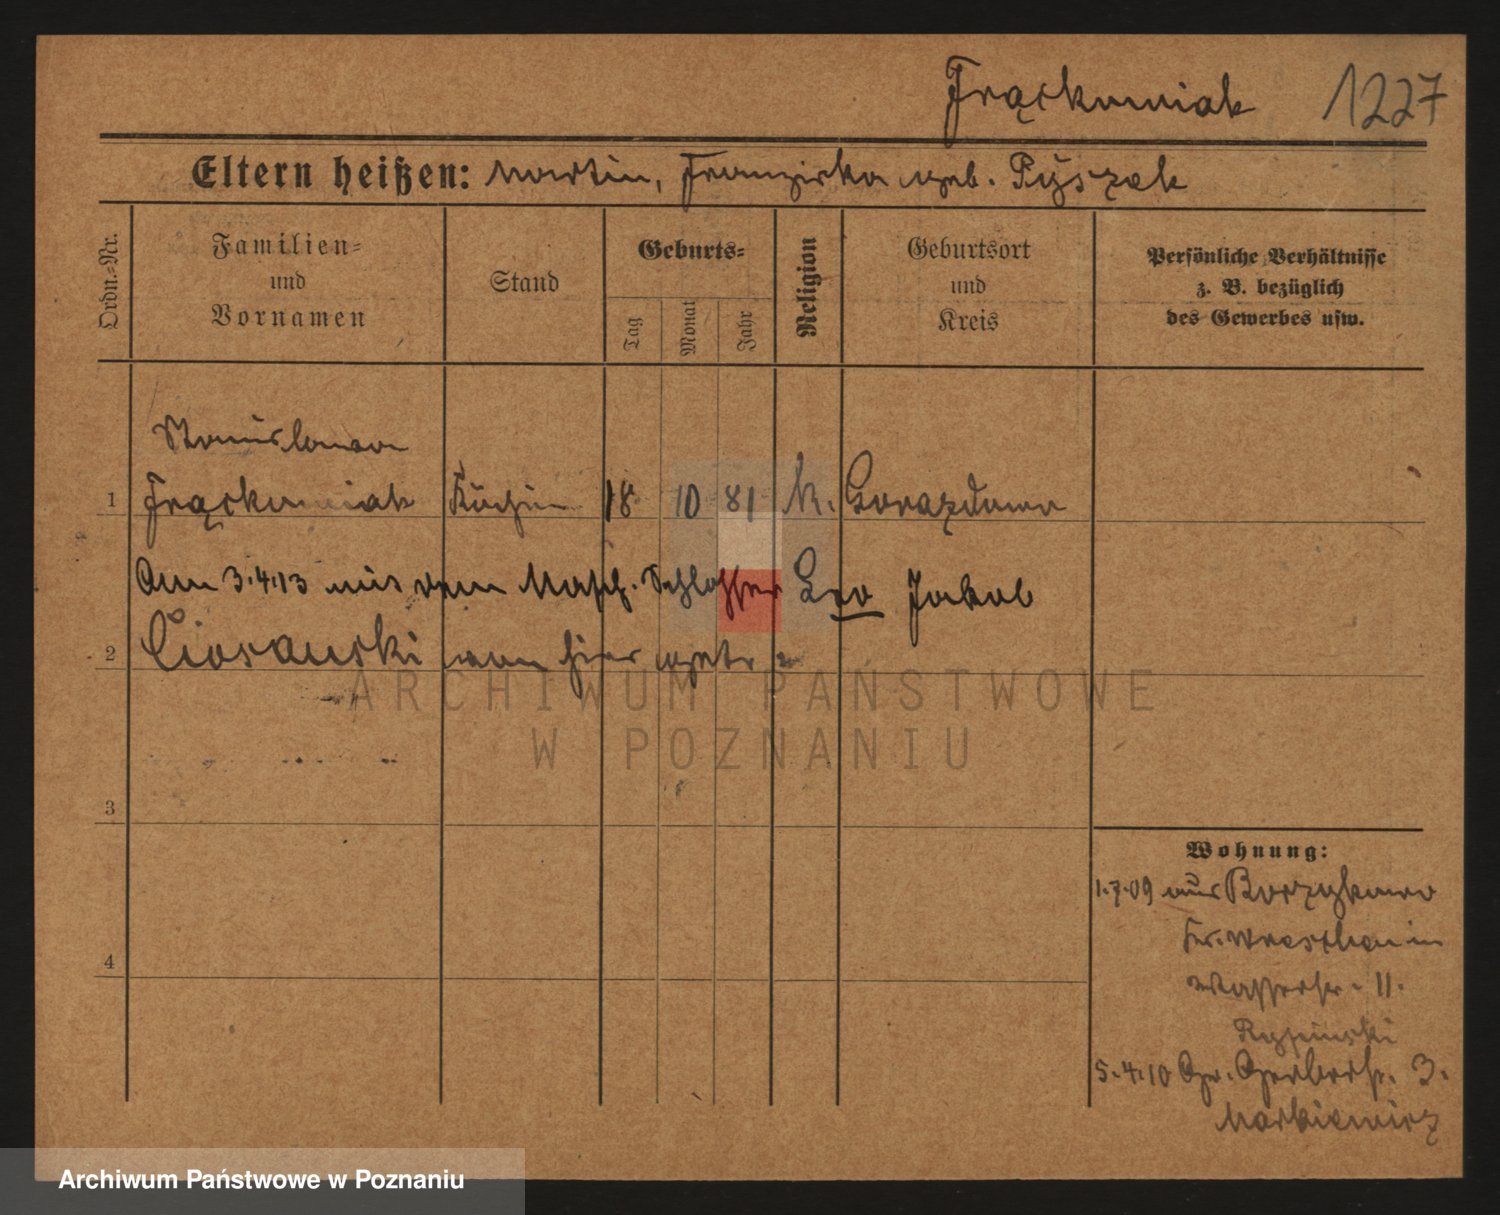 Frąckowiak 1227
Eltern heißen: Martin, Franziska geb. Pyszak
Ordn.-Nr.
Familien-
und
Vornamen
Stand
Geburts-
Tag
Monat
Jahr
Religion
Geburtsort
und
Kreis
Persönliche Verhältnisse
z. B. bezüglich
des Gewerbes usw.
Stanislawa
1 Frąckowiak Köchin 18 10 81 k. Gorazdowo
Am 3.4.13 mit dem Masch. Schlosser Leo Jakob
2 Ciosanski von hier getr.
3
4
Wohnung:
1.7.09 aus Borzykowo
Kr. Wreschen in
Wasserstr. 11.
5.4.10 Gr. Gerberstr. 3.
Markiewicz
ARCHIWUM PAŃSTWOWE
W POZNANIU
Archiwum Państwowe w Poznaniu